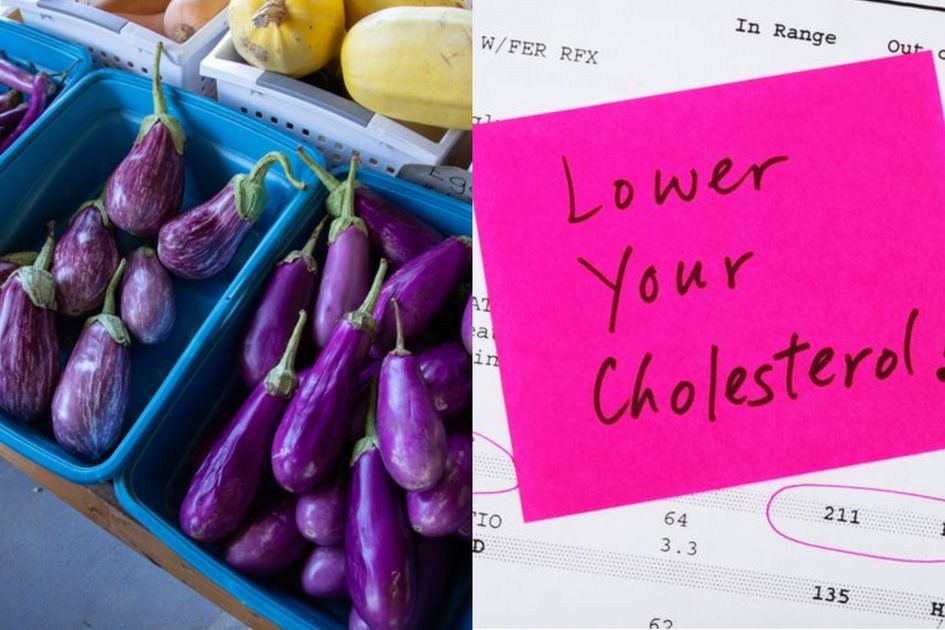 In Range
W/FER RFX
Lower
Your
Cholesterol!
64
211
3.3
135
H
62